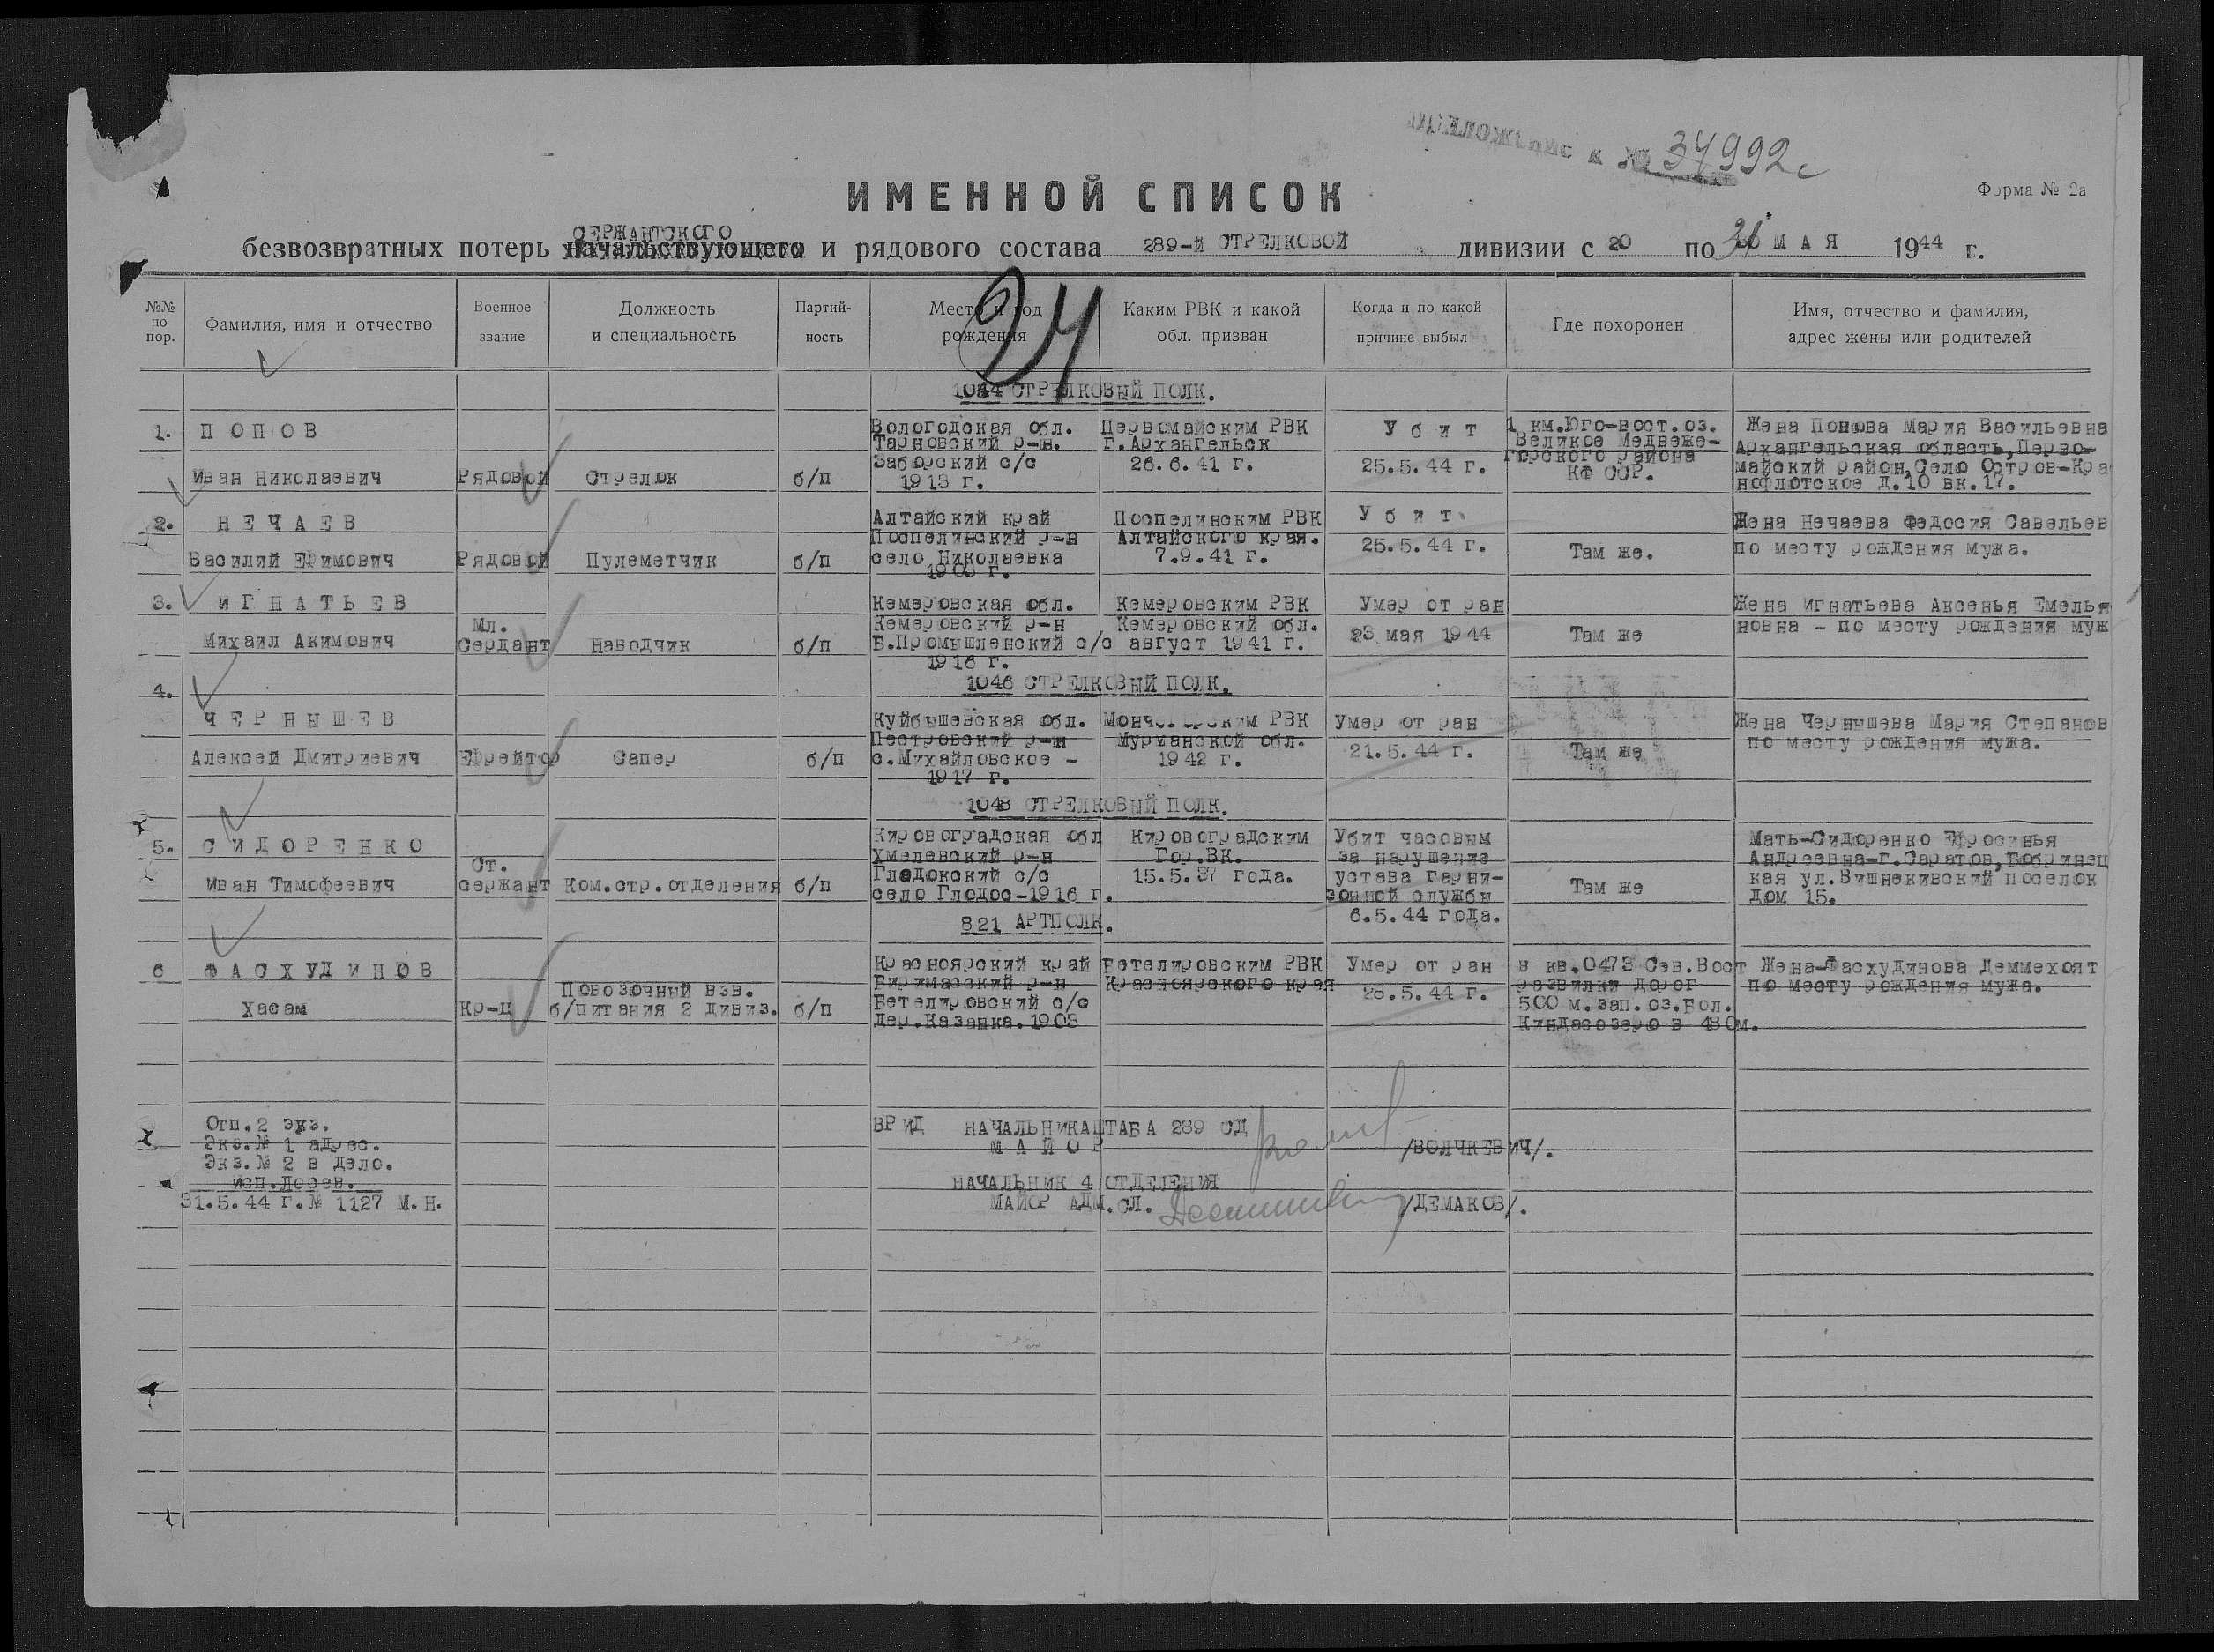 Приложение к № 34992с
ИМЕННОЙ СПИСОК
Форма № 2а
СЕРЖАНТСКОГО
безвозвратных потерь начальствующего и рядового состава 289-й СТРЕЛКОВОЙ дивизии с 20 по 31 МАЯ 1944 г.
24
№№ по пор.
Фамилия, имя и отчество
Военное звание
Должность и специальность
Партий-ность
Место и год рождения
Каким РВК и какой обл. призван
Когда и по какой причине выбыл
Где похоронен
Имя, отчество и фамилия, адрес жены или родителей
1044 СТРЕЛКОВЫЙ ПОЛК.
1.
ПОПОВ
Иван Николаевич
Рядовой
Стрелок
б/п
Вологодская обл.
Тарновский р-н.
Заборский с/с
1913 г.
Первомайским РВК
г.Архангельск
26.6.41 г.
Убит
25.5.44 г.
1 км.Юго-вост.оз.
Великое Медвеже-
горского района
КФ ССР.
Жена Попова Мария Васильевна
Архангельская область,Перво-
майский район,Село Остров-Кра
нофлотское д.10 вк.17.
2.
НЕЧАЕВ
Василий Ефимович
Рядовой
Пулеметчик
б/п
Алтайский край
Поспелинский р-н
село Николаевка
1903 г.
Поспелинским РВК
Алтайского края.
7.9.41 г.
Убит
25.5.44 г.
Там же.
Жена Нечаева Федосия Савельев
по месту рождения мужа.
3.
ИГНАТЬЕВ
Михаил Акимович
Мл.
Сердант
Наводчик
б/п
Кемеровская обл.
Кемеровский р-н
Б.Промышленский с/с
1916 г.
Кемеровским РВК
Кемеровский обл.
август 1941 г.
Умер от ран
23 мая 1944
Там же
Жена Игнатьева Аксенья Емелья
новна - по месту рождения муж
1046 СТРЕЛКОВЫЙ ПОЛК.
4.
ЧЕРНЫШЕВ
Алексей Дмитриевич
Ефрейтор
Сапер
б/п
Куйбышевская обл.
Пестровский р-н
с.Михайловское -
1917 г.
Мончегорским РВК
Мурманской обл.
1942 г.
Умер от ран
21.5.44 г.
Там же
Жена Чернышева Мария Степанов
по месту рождения мужа.
1048 СТРЕЛКОВЫЙ ПОЛК.
5.
СИДОРЕНКО
Иван Тимофеевич
Ст.
сержант
Ком.стр.отделения
б/п
Кировоградская обл
Хмелевский р-н
Гладокский с/с
село Глодос-1916 г.
Кировоградским
Гор.ВК.
15.5.37 года.
Убит часовым
за нарушение
устава гарни-
зонной службы
6.5.44 года.
Там же
Мать-Сидоренко Ефросинья
Андреевна-г.Саратов,Бобринец
кая ул.Вишнекивский поселок
дом 15.
821 АРТПОЛК.
6
ФАСХУДИНОВ
Хасам
Кр-ц
Повозочный взв.
б/питания 2 дивиз.
б/п
Красноярский край
Бирилюсский р-н
Бетелировский с/с
дер.Казанка.1903
Бетелировским РВК
Красноярского края
Умер от ран
26.5.44 г.
в кв.0473 Сев.Вост
развилки дорог
500 м.зап.оз.Бол.
Киндасозеро в 480м.
Жена-Фасхудинова Деммехоят
по месту рождения мужа.
Отп.2 экз.
Экз.№ 1 адрес.
Экз.№ 2 в дело.
исп.Лосев.
31.5.44 г.№ 1127 М.Н.
ВРИД НАЧАЛЬНИКАШТАБА 289 СД
МАЙОР /ВОЛЧКЕВИЧ/.
НАЧАЛЬНИК 4 ОТДЕЛЕНИЯ
МАЙОР АДМ.СЛ. /ДЕМАКОВ/.